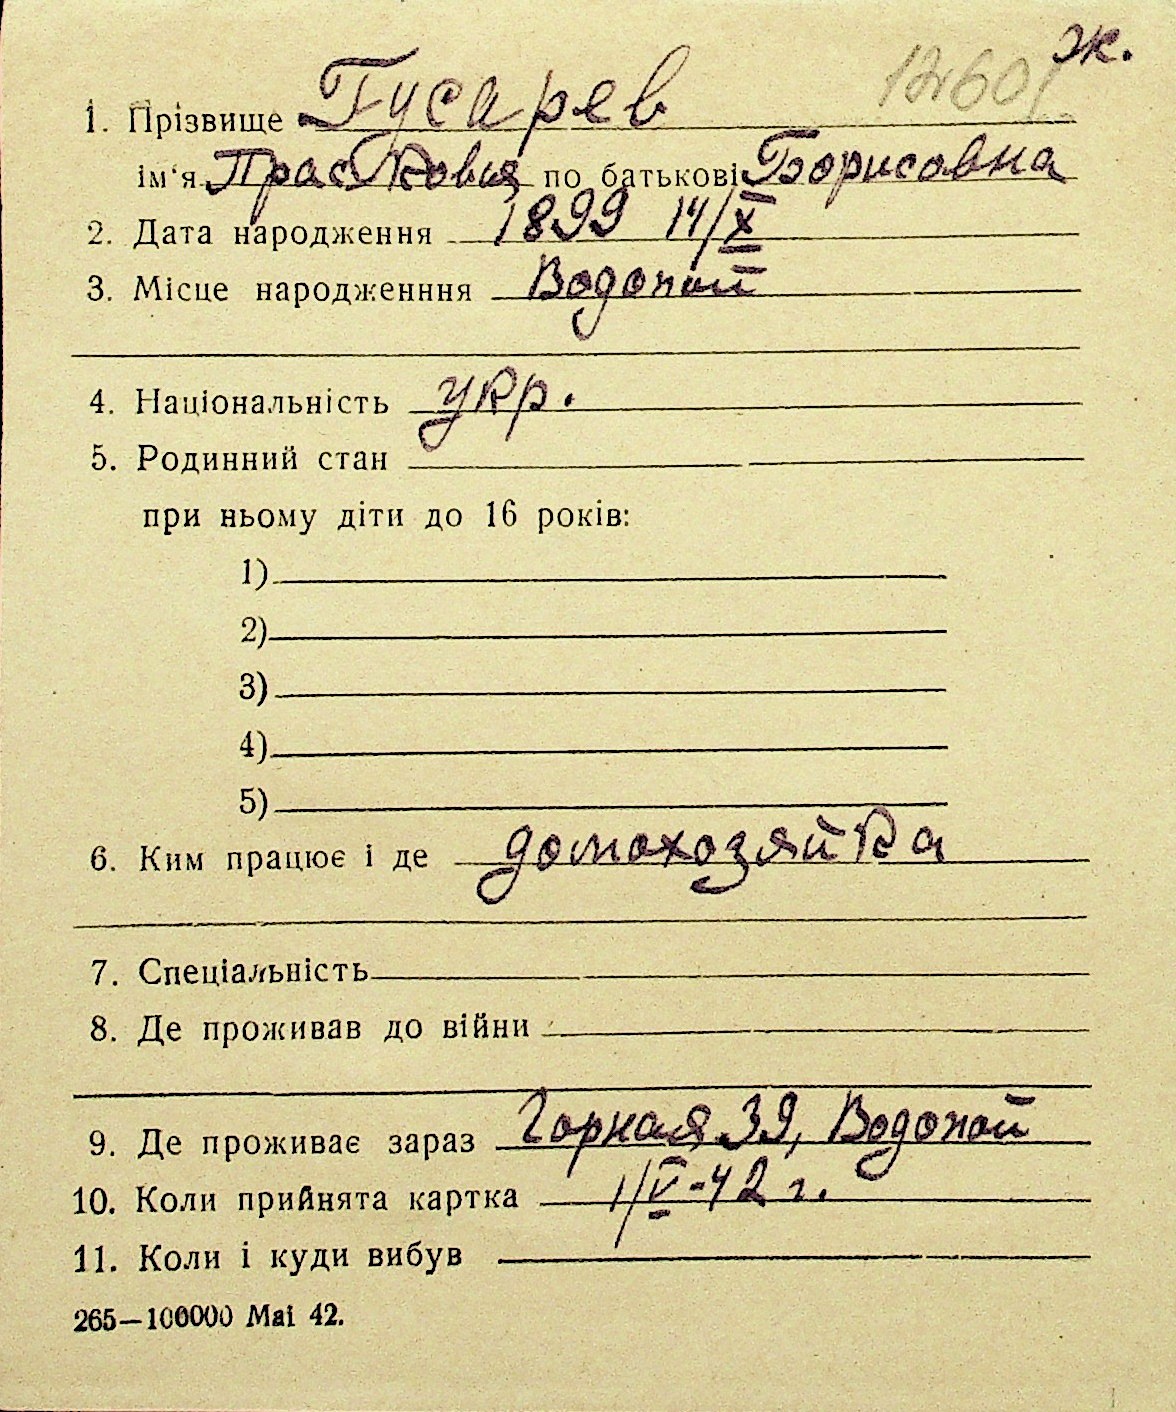 ж.
12601
1. Прізвище Гусарев
ім‘я Прасковья по батькові Борисовна
2. Дата народження 1899 14/X
3. Місце народженння Водопой
4. Національність укр.
5. Родинний стан
при ньому діти до 16 років:
1)
2)
3)
4)
5)
6. Ким працює і де домохозяйка
7. Спеціальність
8. Де проживав до війни
9. Де проживає зараз Горная 39, Водопой
10. Коли прийнята картка 1/V-42 г.
11. Коли і куди вибув
265—100000 Mai 42.